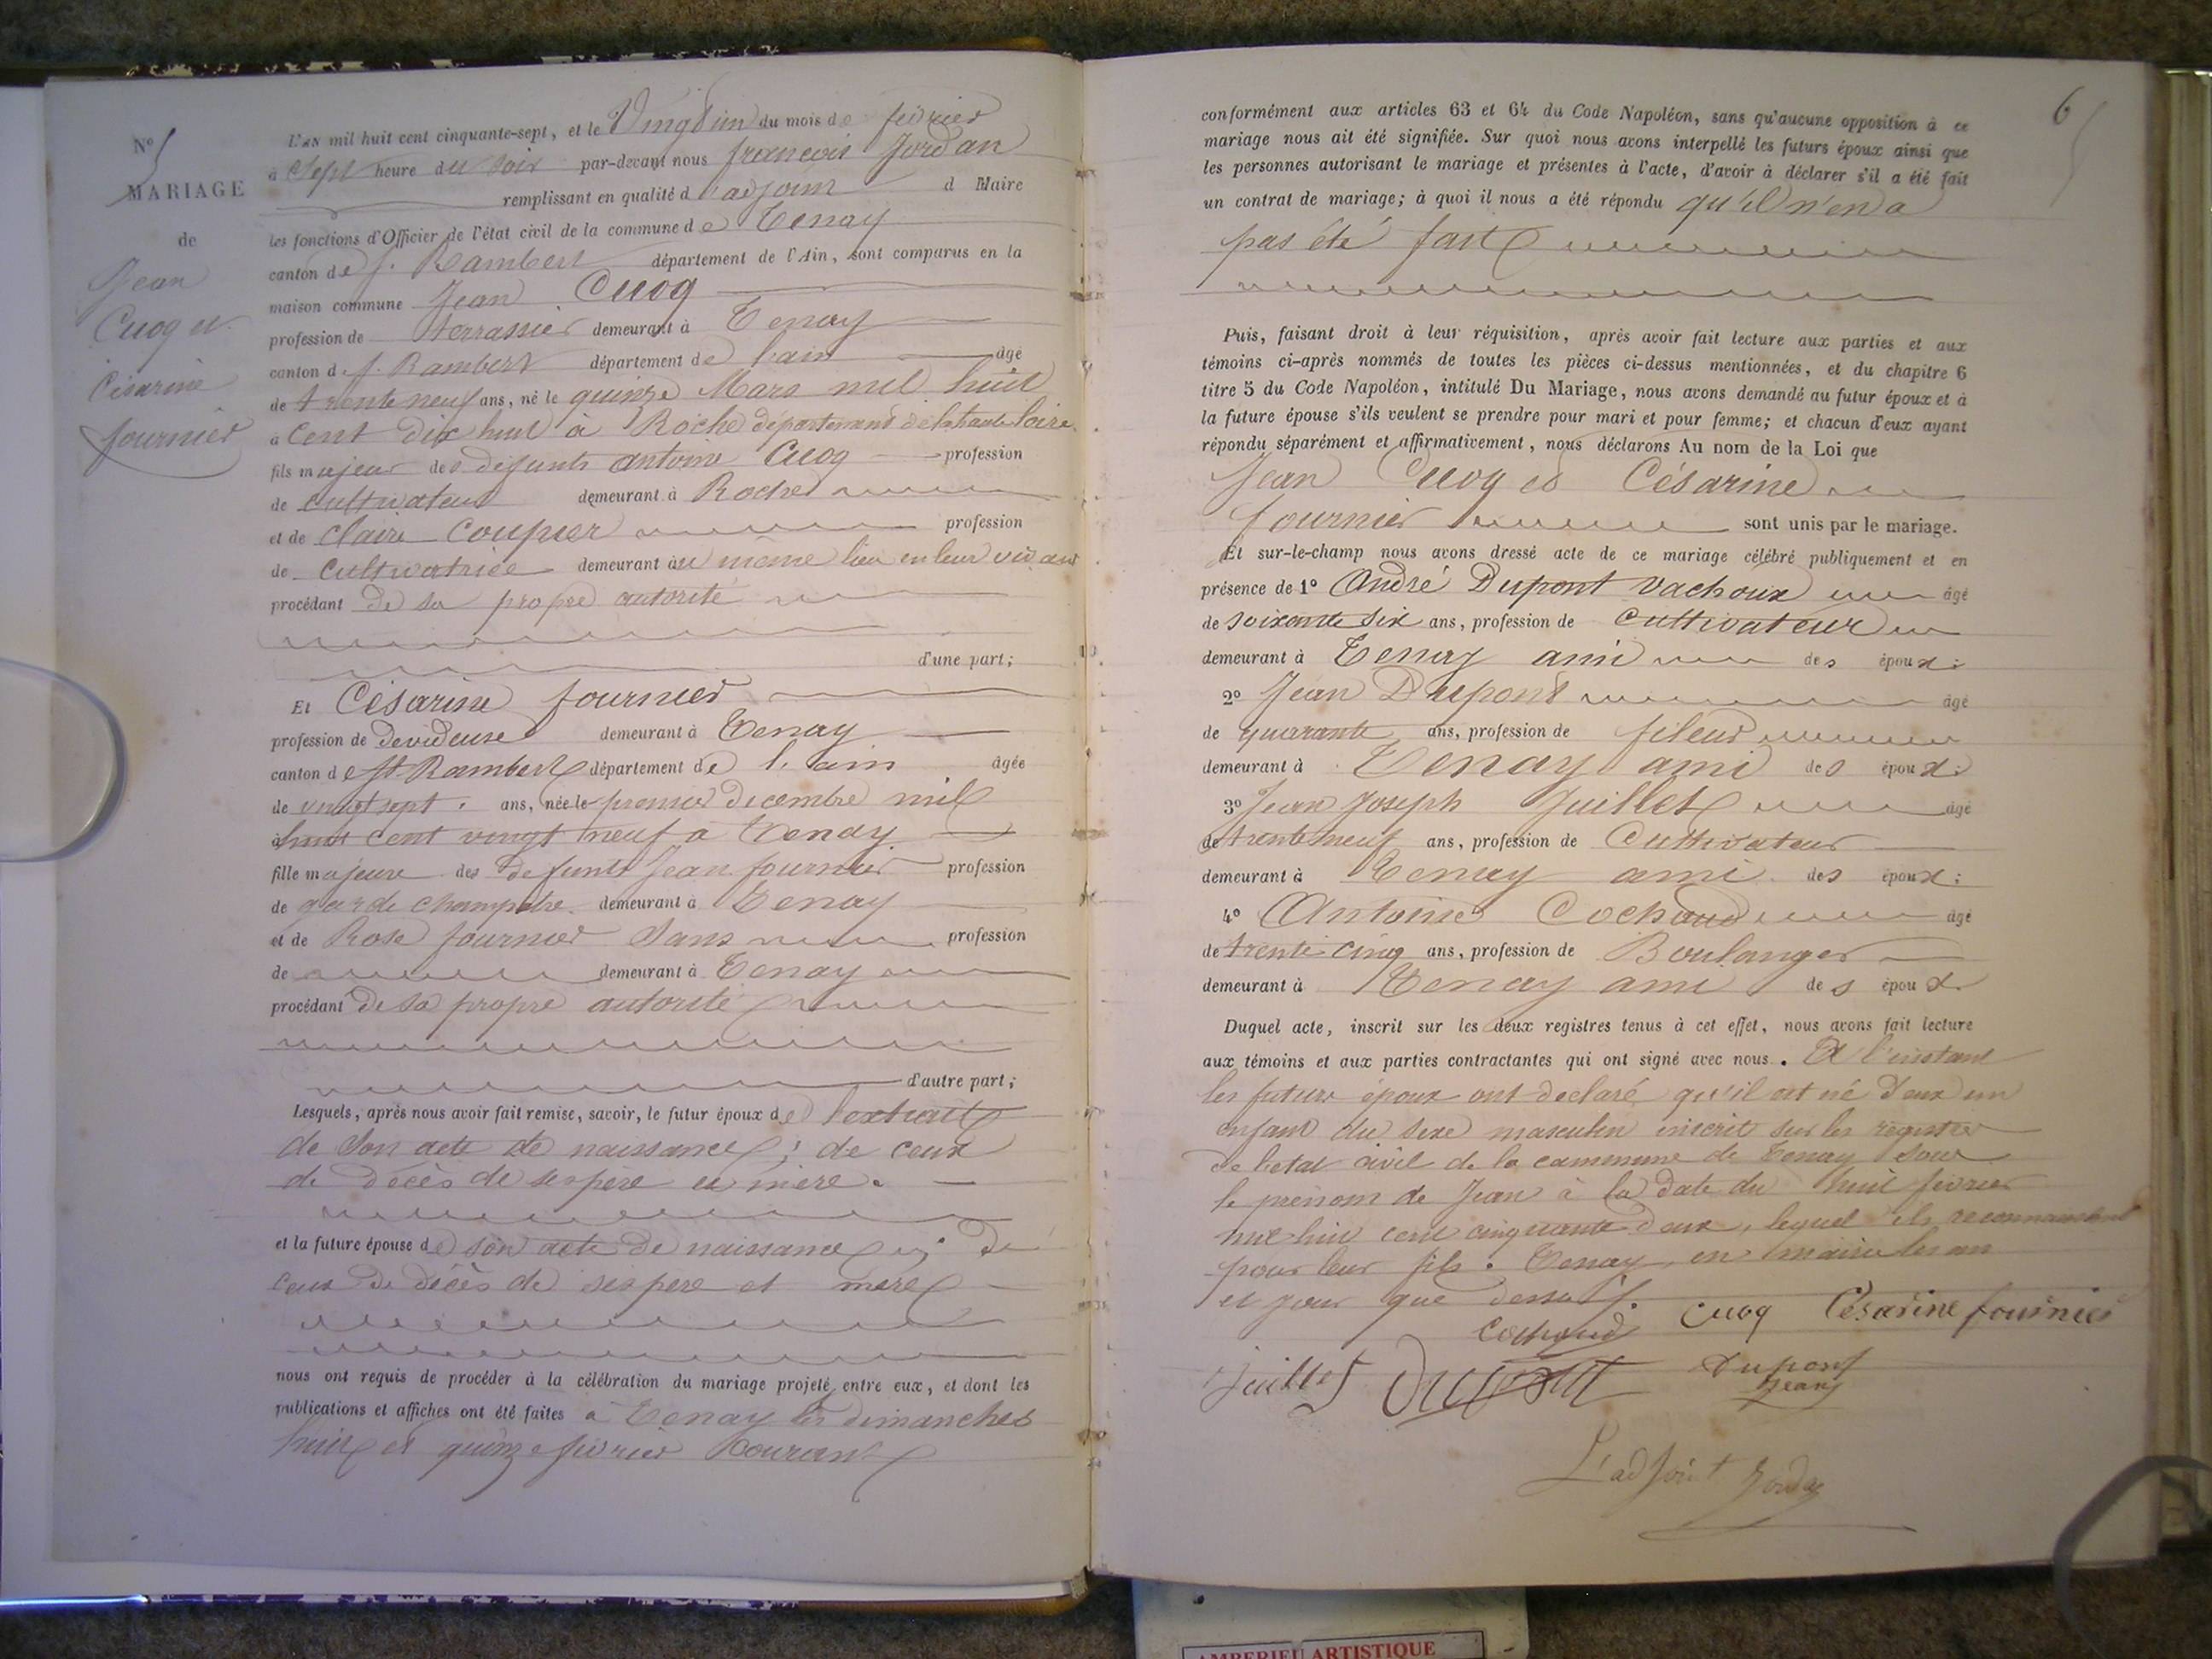 N° 5
MARIAGE
de
Jean
Cuoq et
Césarine
fournier
L'AN mil huit cent cinquante-sept, et le Vingt un du mois de février
à Sept heure du soir par-devant nous francois Jordan
remplissant en qualité d'adjoint d Maire
les fonctions d'Officier de l'état civil de la commune de Tenay
canton de St. Rambert département de l'Ain, sont comparus en la
maison commune Jean Cuoq
profession de terrassier demeurant à Tenay
canton d St. Rambert département de l'ain âgé
de trente neuf ans, né le quinze Mars mil huit
à Cent dix huit à Roche département de la haute loire
fils majeur des defunts antoine Cuoq profession
de cultivateur demeurant à Roche
et de Claire Coupier profession
de Cultivatrice demeurant au même lieu en leur vivant
procédant de sa propre autorité
d'une part;
Et Césarine fournier
profession de devideuse demeurant à Tenay
canton de St. Rambert département de l'ain âgée
de vingt sept ans, née le premier decembre mil
à huit cent vingt neuf à Tenay
fille majeure des defunts Jean fournier profession
de garde champetre demeurant à Tenay
et de Rose fournier Sans profession
de demeurant à Tenay
procédant de sa propre autorité
d'autre part;
Lesquels, après nous avoir fait remise, savoir, le futur époux de l'extrait
de son acte de naissance; de ceux
de décès de ses père et mère.
et la future épouse de son acte de naissance et de
ceux de décès de ses pere et mère
nous ont requis de procéder à la célébration du mariage projeté entre eux, et dont les
publications et affiches ont été faites à Tenay les dimanches
huit et quinze février Courant
6
conformément aux articles 63 et 64 du Code Napoléon, sans qu'aucune opposition à ce
mariage nous ait été signifiée. Sur quoi nous avons interpellé les futurs époux ainsi que
les personnes autorisant le mariage et présentes à l'acte, d'avoir à déclarer s'il a été fait
un contrat de mariage; à quoi il nous a été répondu qu'il n'en a
pas été fait
Puis, faisant droit à leur réquisition, après avoir fait lecture aux parties et aux
témoins ci-après nommés de toutes les pièces ci-dessus mentionnées, et du chapitre 6
titre 5 du Code Napoléon, intitulé Du Mariage, nous avons demandé au futur époux et à
la future épouse s'ils veulent se prendre pour mari et pour femme; et chacun d'eux ayant
répondu séparément et affirmativement, nous déclarons Au nom de la Loi que
Jean Cuoq et Césarine
fournier sont unis par le mariage.
Et sur-le-champ nous avons dressé acte de ce mariage célébré publiquement et en
présence de 1° André Dupont Vachoux âgé
de soixante six ans, profession de Cultivateur
demeurant à Tenay ami des époux:
2° Jean Dupont âgé
de quarante ans, profession de fileur
demeurant à Tenay ami des époux:
3° Jean Joseph Juillet âgé
de trente neuf ans, profession de Cultivateur
demeurant à Tenay ami des époux:
4° Antoine Cochoud âgé
de trente cinq ans, profession de Boulanger
demeurant à Tenay ami des époux.
Duquel acte, inscrit sur les deux registres tenus à cet effet, nous avons fait lecture
aux témoins et aux parties contractantes qui ont signé avec nous. Et l'instant
les futurs époux ont declaré qu'il est né d'eux un
enfant du sexe masculin inscrit sur les registres
de l'etat civil de la commune de Tenay sous
le prénom de Jean à la date du huit février
mil huit cent cinquante deux, lequel ils reconnaissent
pour leur fils. Tenay, en mairie les an
et jour que dessus.
Cochoud Cuoq Césarine fournier
Juillet Dupont Dupont
Jean
L'adjoint Jordan
AMBERIEU ARTISTIQUE